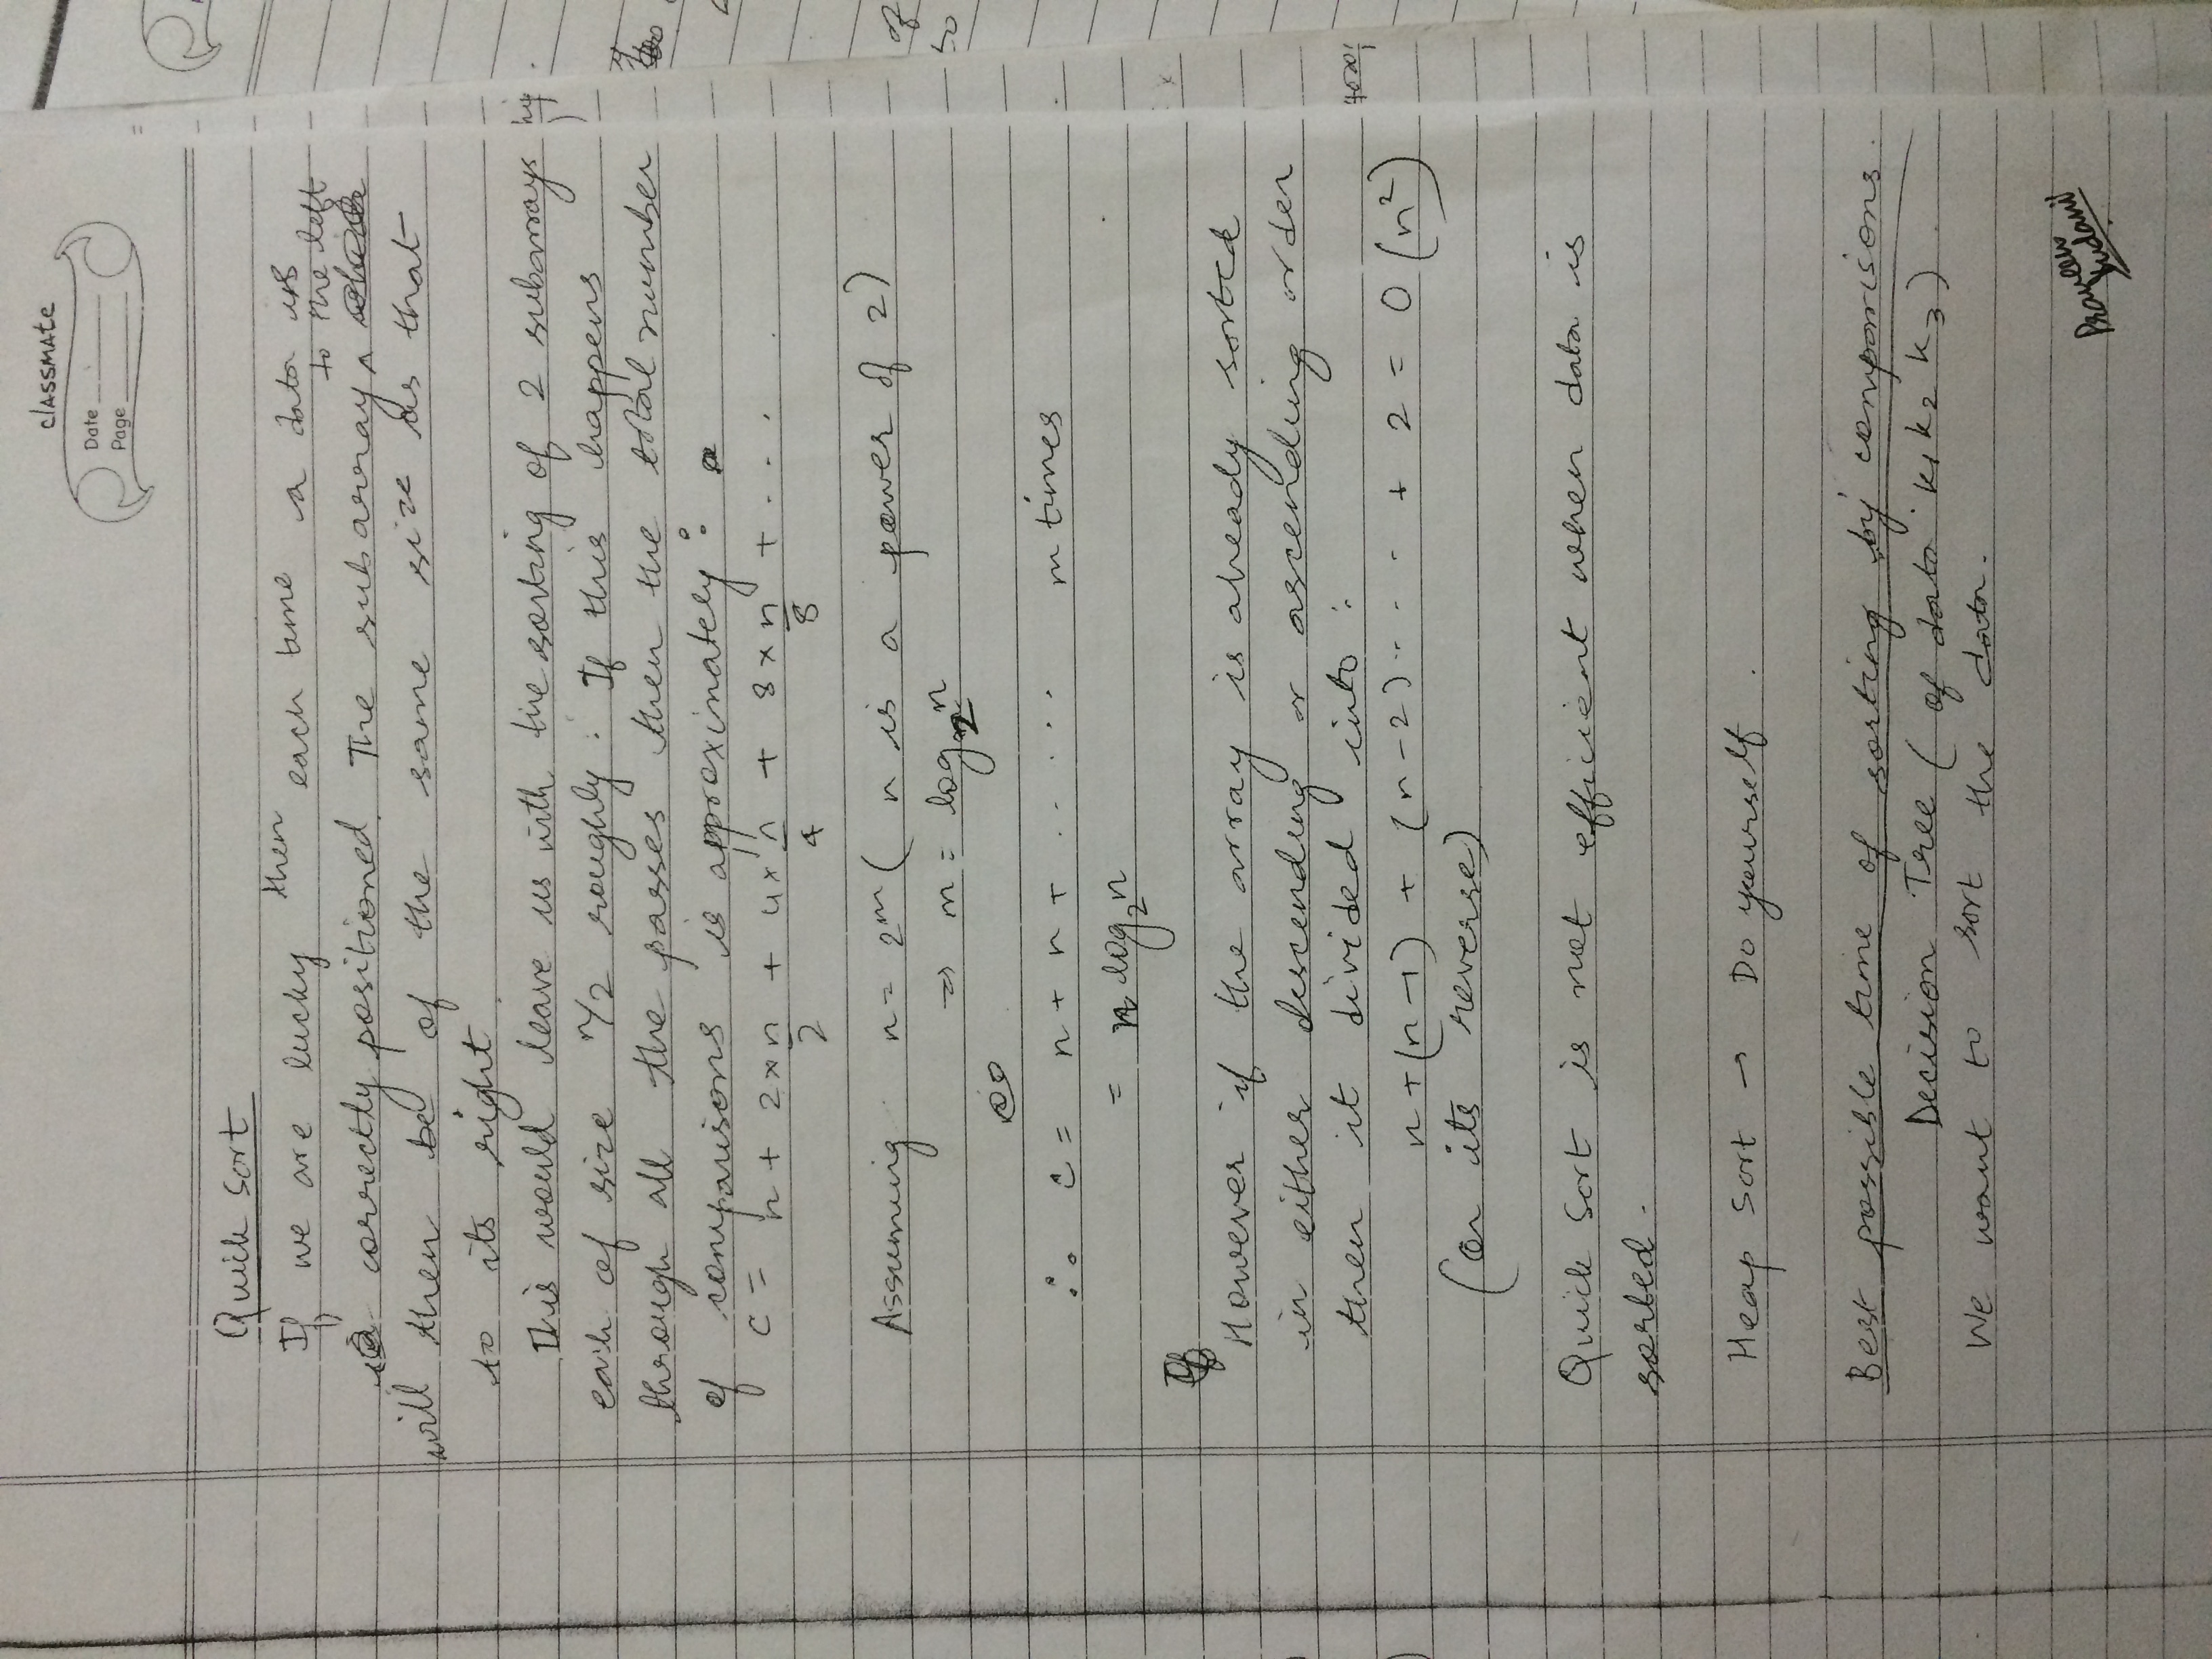 classmate
Date
Page
Quick Sort
If we are lucky then each time a data is
correctly positioned. The subarray ^ to the left
will then be of the same size as that
to its right.
This would leave us with the sorting of 2 subarrays
each of size n/2 roughly. If this happens
through all the passes then the total number
of comparisons is approximately :
C = n + 2×n/2 + 4×n/4 + 8×n/8 + ....
Assuming n = 2^m ( n is a power of 2)
⇒ m = log₂n
∴ C = n + n + ...... m times
= n log₂n
If
However if the array is already sorted
in either descending or ascending order
then it divided into :
n+(n-1) + (n-2) .... + 2 = O(n²)
(or its reverse)
Quick Sort is not efficient when data is
sorted.
Heap Sort → Do yourself.
Best possible time of sorting by comparisons.
Decision Tree ( of data k1 k2 k3)
We want to sort the data.
Praveen
of
so